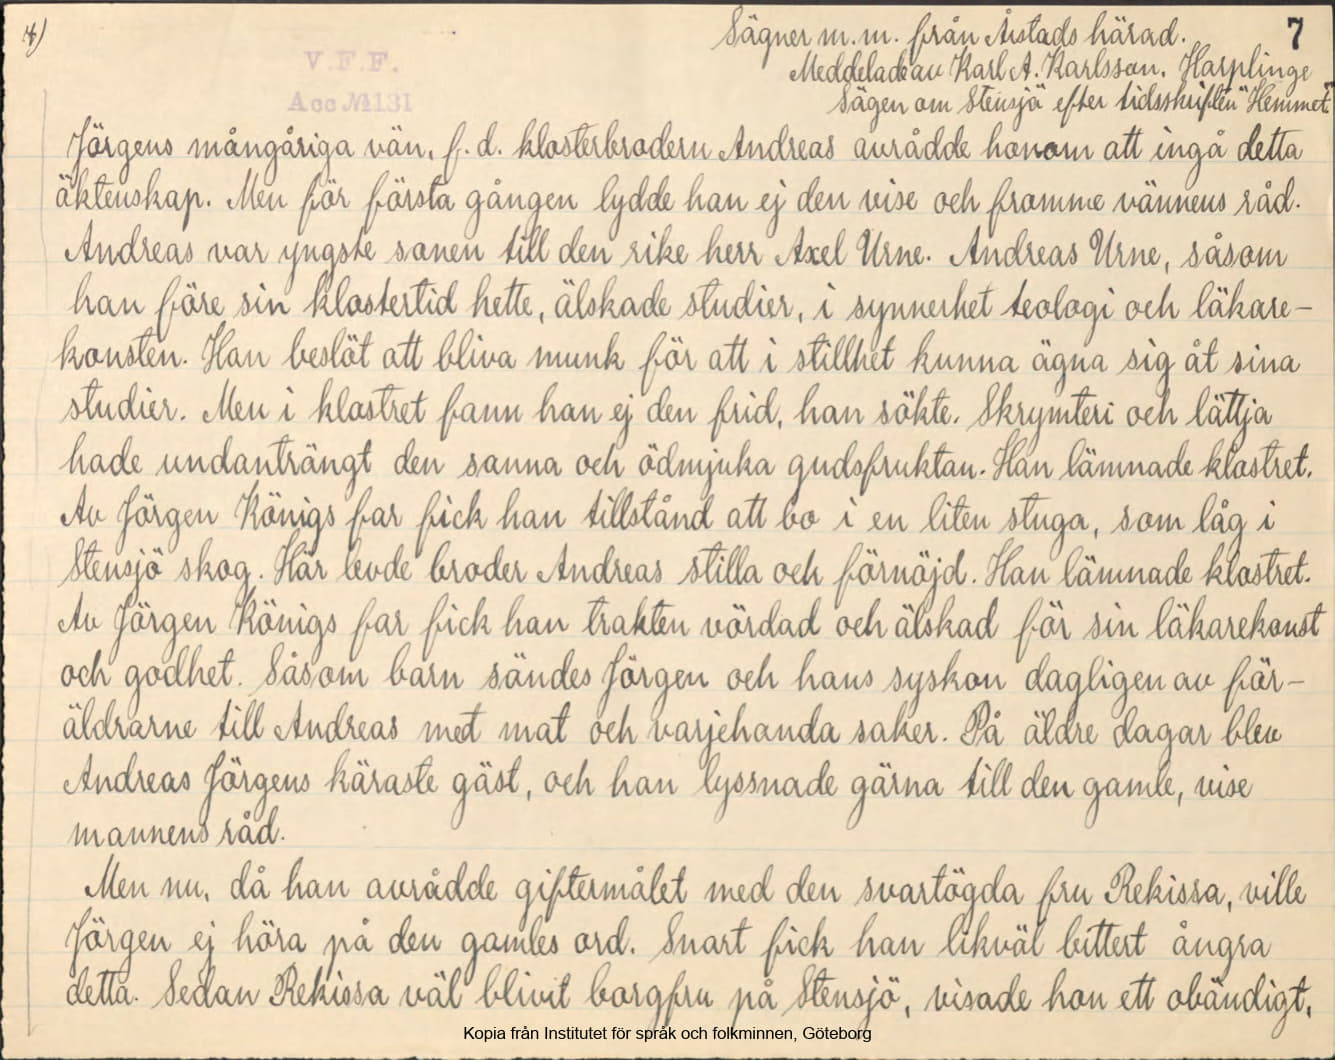 4)
Sägner m.m. från Årstads härad.
7
V.F.F.
Acc № 131
Meddelade av Karl A. Karlsson, Harplinge
Sägen om Stensjö efter tidsskriften "Hemmet"
Jörgens mångåriga vän, f.d. klosterbrodern Andreas avrådde honom att ingå detta
äktenskap. Men för första gången lydde han ej den vise och fromme vännens råd.
Andreas var yngste sonen till den rike herr Axel Urne. Andreas Urne, såsom
han före sin klostertid hette, älskade studier, i synnerhet teologi och läkare-
konsten. Han beslöt att bliva munk för att i stillhet kunna ägna sig åt sina
studier. Men i klostret fann han ej den frid, han sökte. Skrymteri och lättja
hade undanträngt den sanna och ödmjuka gudsfruktan. Han lämnade klostret.
Av Jörgen Königs far fick han tillstånd att bo i en liten stuga, som låg i
Stensjö skog. Här levde broder Andreas stilla och förnöjd. Han lämnade klostret.
Av Jörgen Königs far fick han trakten vördad och älskad för sin läkarekonst
och godhet. Såsom barn sändes Jörgen och hans syskon dagligen av för-
äldrarne till Andreas med mat och varjehanda saker. På äldre dagar blev
Andreas Jörgens käraste gäst, och han lyssnade gärna till den gamle, vise
mannens råd.
Men nu, då han avrådde giftermålet med den svartögda fru Rekissa, ville
Jörgen ej höra på den gamles ord. Snart fick han likväl bittert ångra
detta. Sedan Rekissa väl blivit borgfru på Stensjö, visade hon ett obändigt,
Kopia från Institutet för språk och folkminnen, Göteborg